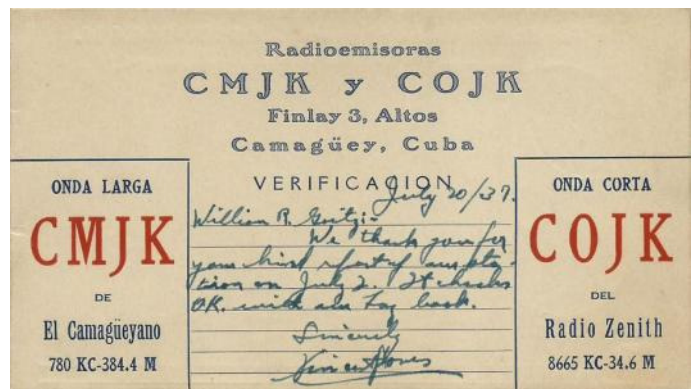 Radioemisoras
CMJK y COJK
Finlay 3, Altos
Camagüey, Cuba
ONDA LARGA
CMJK
DE
El Camagüeyano
780 KC-384.4 M
VERIFICACION
July 20/37.
William R. Goitz:-
We thank you for
your kind report of our sta-
tion on July 2. It checks
OK. with our log book.
Sincerely
ONDA CORTA
COJK
DEL
Radio Zenith
8665 KC-34.6 M